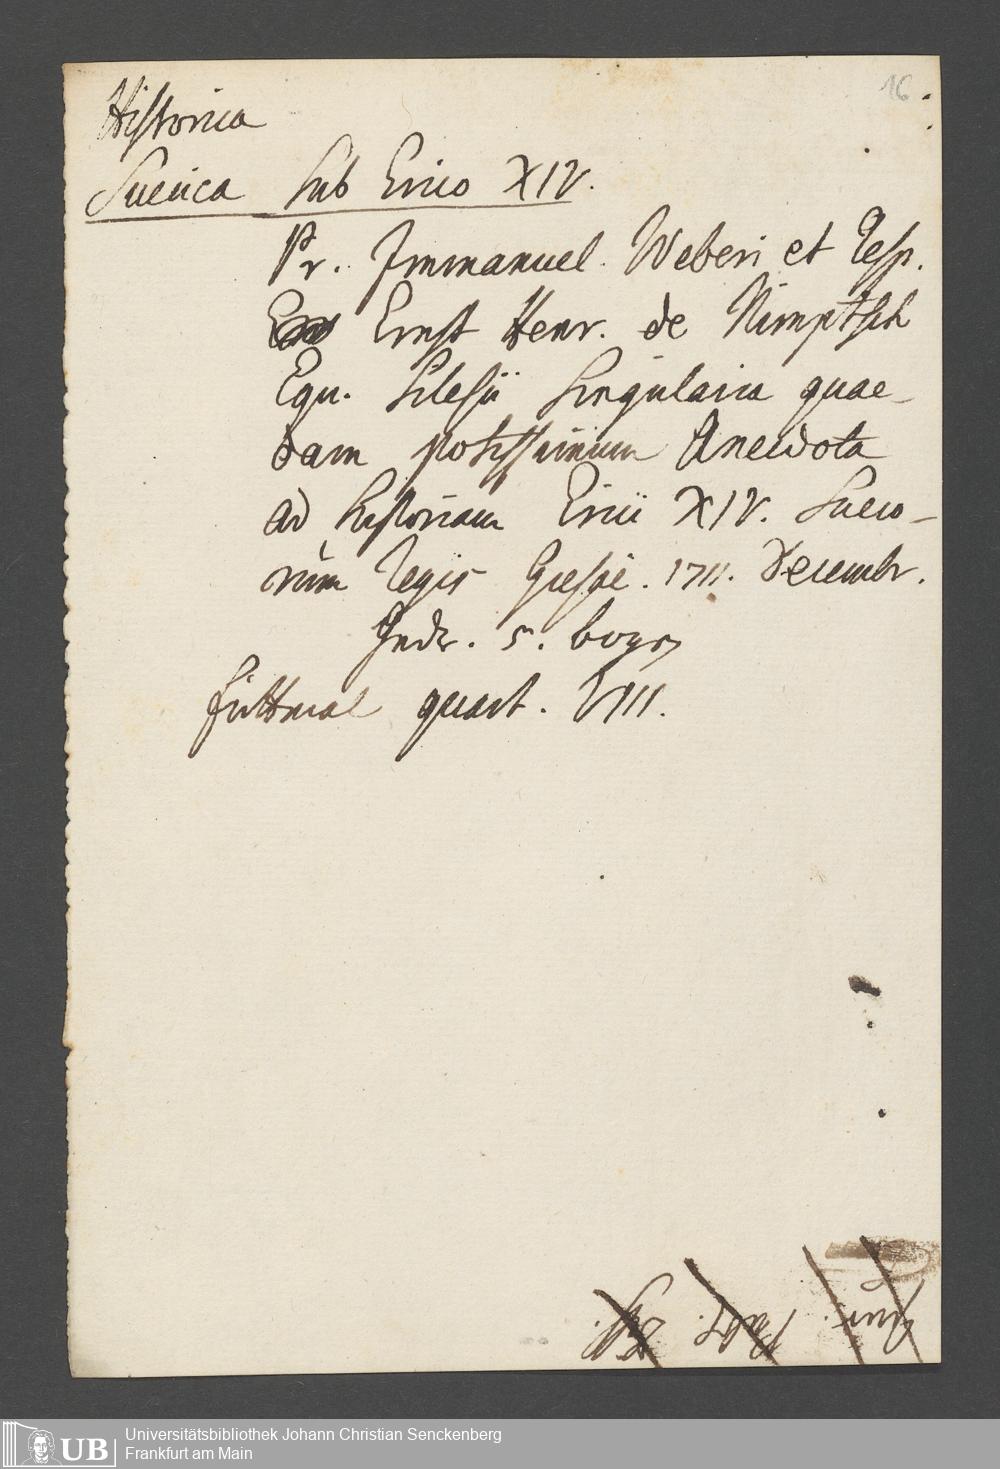 16
Historica
Suecica sub Erico XIV.
Pr. Immanuel. Weberi et Resp.
Ernst Henr. de Nimptsch
Equ. Silesii singularia quae-
dam potissimum Anecdota
ad historiam Erici XIV. Sueco-
rum Regis Giessae. 1711. Decembr.
5. bogen
quart. VIII.
UB
Universitätsbibliothek Johann Christian Senckenberg
Frankfurt am Main